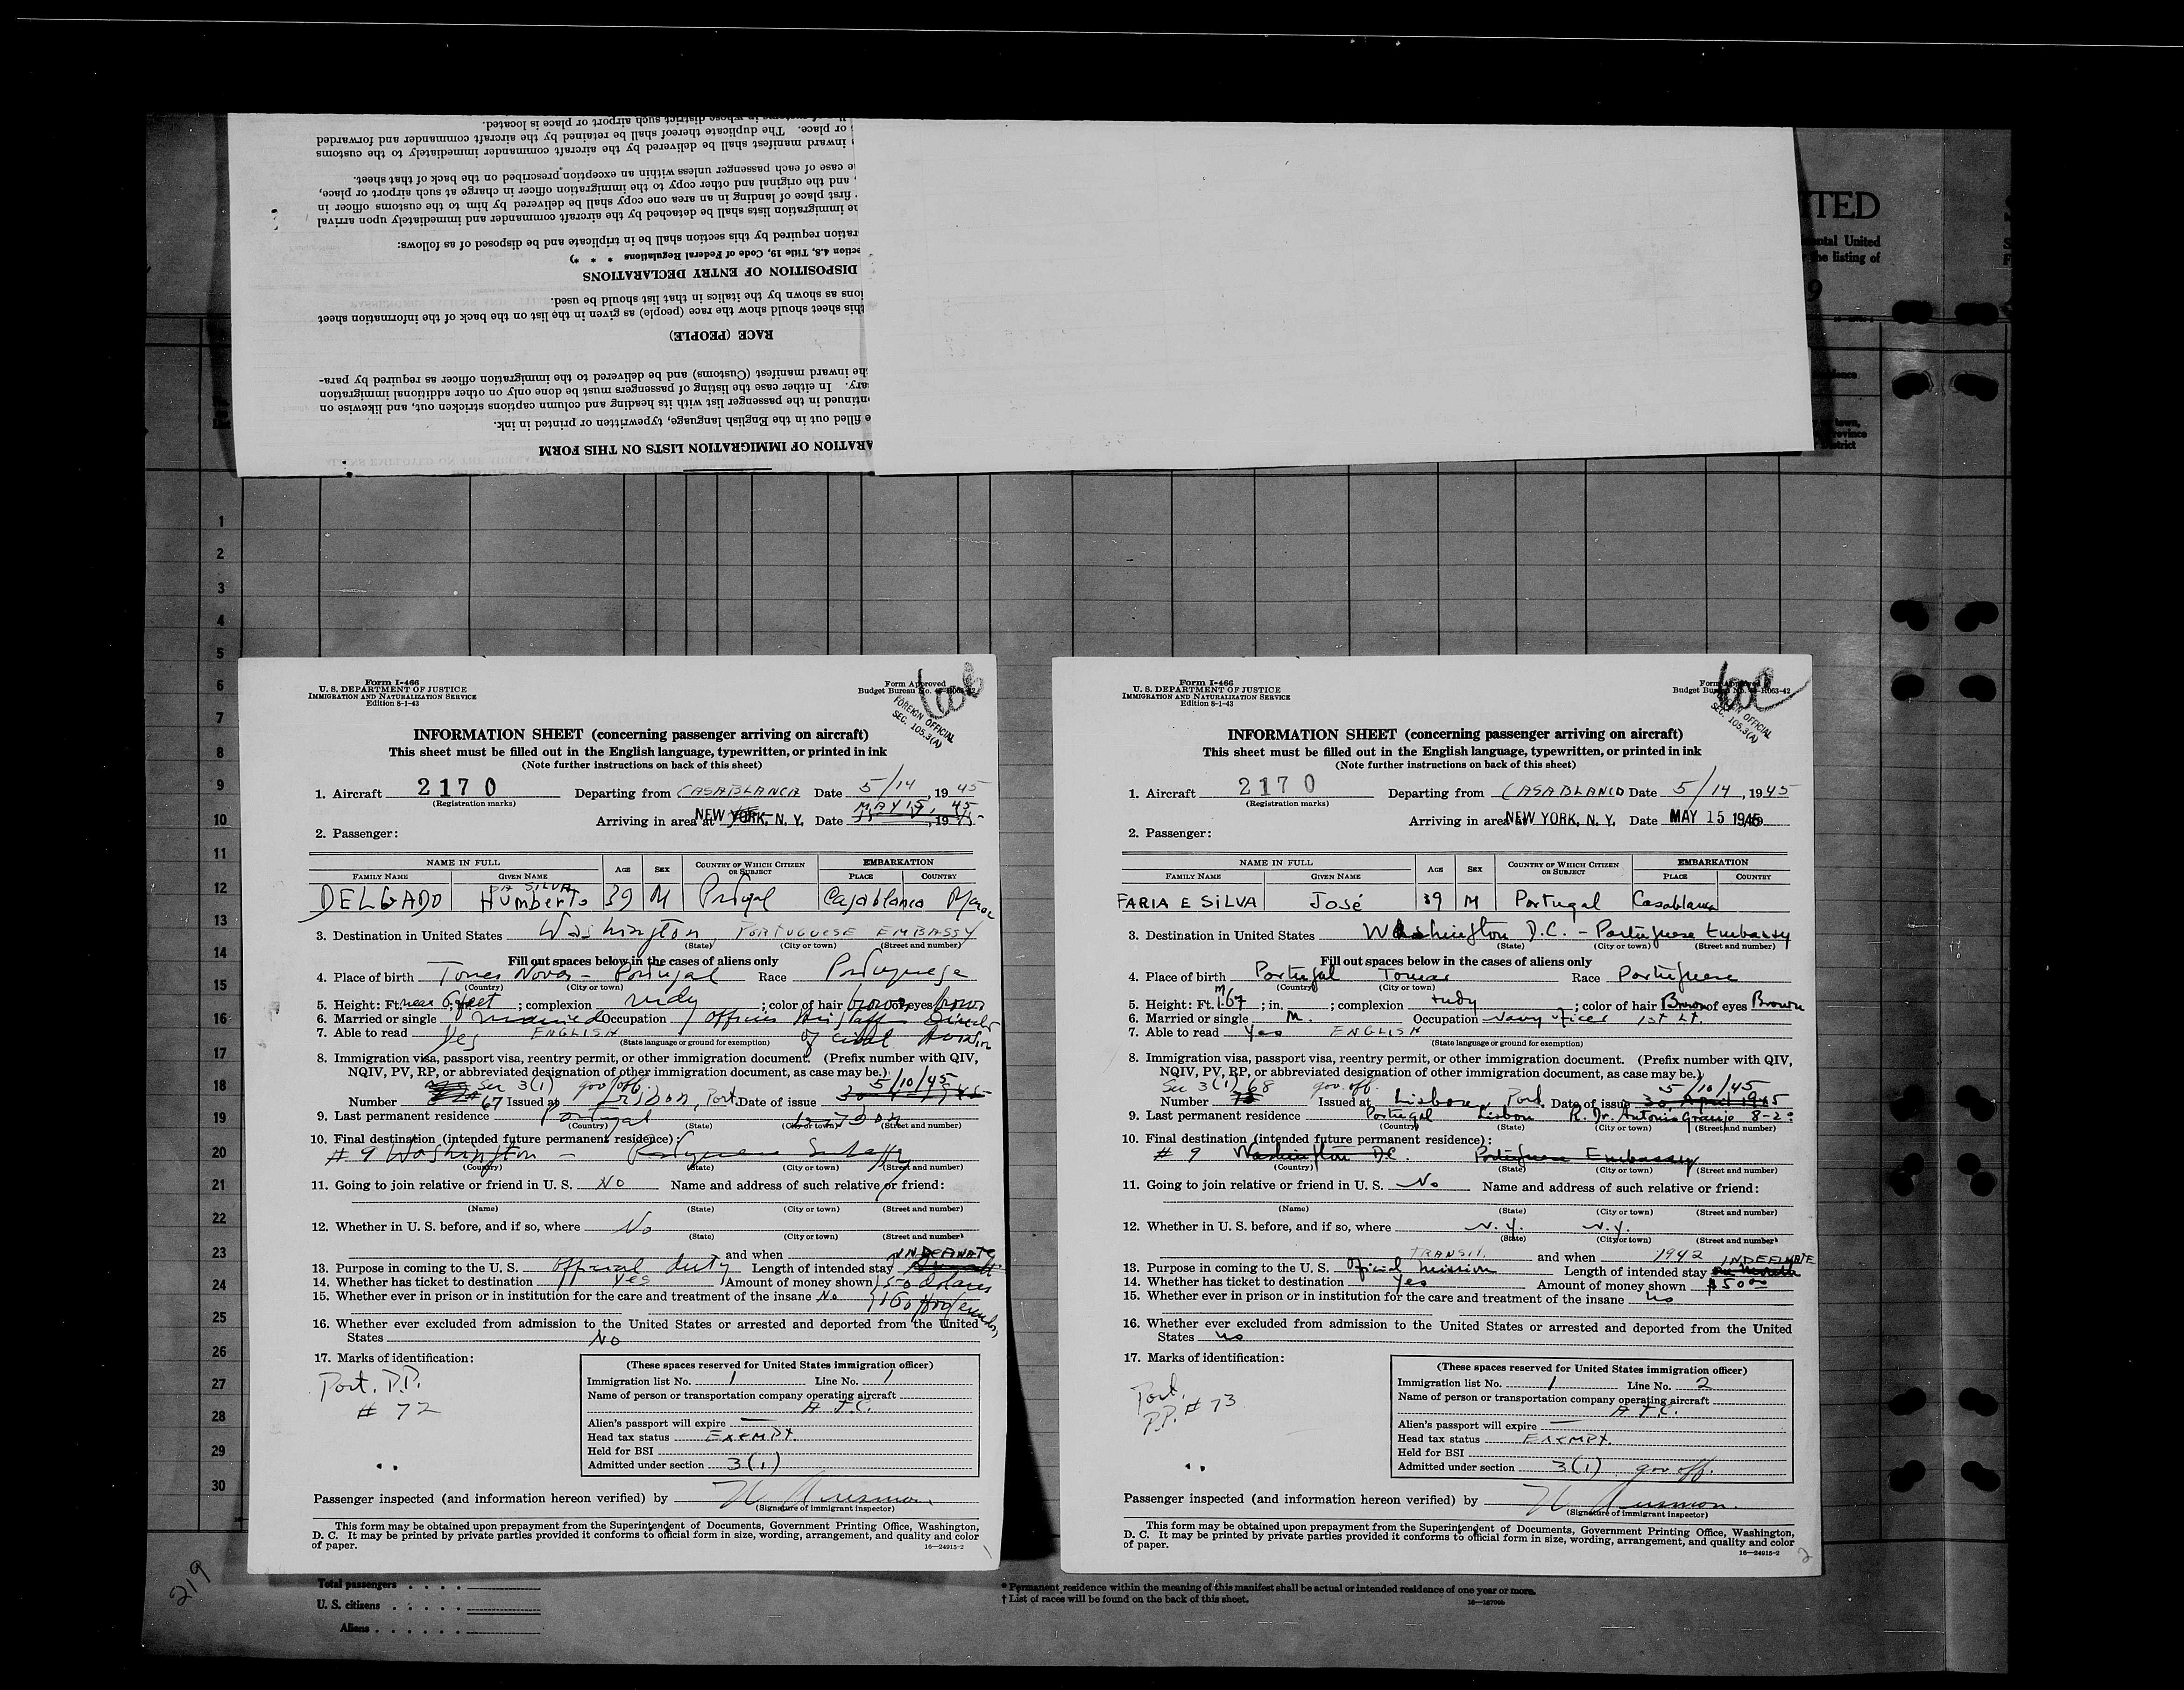 ARATION OF IMMIGRATION LISTS ON THIS FORM
e filled out in the English language, typewritten or printed in ink.
ntinued in the passenger list with its heading and column captions stricken out, and likewise on
ary. In either case the listing of passengers must be done only on other additional immigration
he inward manifest (Customs) and be delivered to the immigration officer as required by para-
RACE (PEOPLE)
this sheet should show the race (people) as given in the list on the back of the information sheet
ions as shown by the italics in that list should be used.
DISPOSITION OF ENTRY DECLARATIONS
ection 4.8, Title 19, Code of Federal Regulations * * *)
ration required by this section shall be in triplicate and be disposed of as follows:
he immigration lists shall be detached by the aircraft commander and immediately upon arrival
first place of landing in an area one copy shall be delivered by him to the customs officer in
, and the original and other copy to the immigration officer in charge at such airport or place,
he case of each passenger unless within an exception prescribed on the back of that sheet.
inward manifest shall be delivered by the aircraft commander immediately to the customs
or place. The duplicate thereof shall be retained by the aircraft commander and forwarded
of customs in whose district such airport or place is located.
ITED
ental United
the listing of
9
town,
rovince
District
1
2
3
4
5
6
7
8
9
10
11
12
13
14
15
16
17
18
19
20
21
22
23
24
25
26
27
28
29
30
Form I-466
U. S. DEPARTMENT OF JUSTICE
IMMIGRATION AND NATURALIZATION SERVICE
Edition 8-1-43
Form Approved
Budget Bureau No. 43-R063-42
FOREIGN OFFICIAL
SEC. 105.3(A)
INFORMATION SHEET (concerning passenger arriving on aircraft)
This sheet must be filled out in the English language, typewritten, or printed in ink
(Note further instructions on back of this sheet)
1. Aircraft 2170 Departing from CASABLANCA Date 5/14, 1945
(Registration marks)
Arriving in area at NEW YORK, N. Y. Date MAY 15, 45
2. Passenger:
NAME IN FULL AGE SEX COUNTRY OF WHICH CITIZEN OR SUBJECT EMBARKATION
FAMILY NAME GIVEN NAME PLACE COUNTRY
DA SILVA
DELGADO Humberto 39 M Portugal Casablanca Maroc
3. Destination in United States Washington PORTUGUESE EMBASSY
(State) (City or town) (Street and number)
Fill out spaces below in the cases of aliens only
4. Place of birth Torres Novas - Portugal Race Portuguese
(Country) (City or town)
5. Height: Ft. near 6 feet; in.; complexion rudy; color of hair brown of eyes brown
6. Married or single married Occupation Officer Director
of civil Aviation
7. Able to read Yes ENGLISH
(State language or ground for exemption)
8. Immigration visa, passport visa, reentry permit, or other immigration document. (Prefix number with QIV,
NQIV, PV, RP, or abbreviated designation of other immigration document, as case may be.)
Sec 3(1) gov off. 5/10/45
Number 67 Issued at Lisbon, Port. Date of issue
9. Last permanent residence Portugal Lisbon
(Country) (State) (City or town) (Street and number)
10. Final destination (intended future permanent residence):
# 9 Washington - Portuguese Embassy
(Country) (State) (City or town) (Street and number)
11. Going to join relative or friend in U. S. No Name and address of such relative or friend:
(Name) (State) (City or town) (Street and number)
12. Whether in U. S. before, and if so, where No
(State) (City or town) (Street and number)
and when
13. Purpose in coming to the U. S. official duty Length of intended stay INDEFINATE
14. Whether has ticket to destination yes Amount of money shown 50 dolars
15. Whether ever in prison or in institution for the care and treatment of the insane No
16. Whether ever excluded from admission to the United States or arrested and deported from the United
States No
17. Marks of identification:
Port. P.P.
# 72
(These spaces reserved for United States immigration officer)
Immigration list No. 1 Line No. 1
Name of person or transportation company operating aircraft
A.T.C.
Alien's passport will expire —
Head tax status EXEMPT.
Held for BSI
Admitted under section 3(1)
Passenger inspected (and information hereon verified) by
(Signature of immigrant inspector)
This form may be obtained upon prepayment from the Superintendent of Documents, Government Printing Office, Washington,
D. C. It may be printed by private parties provided it conforms to official form in size, wording, arrangement, and quality and color
of paper.
16—24915-2
Form I-466
U. S. DEPARTMENT OF JUSTICE
IMMIGRATION AND NATURALIZATION SERVICE
Edition 8-1-43
Form Approved
Budget Bureau No. 43-R063-42
FOREIGN OFFICIAL
SEC. 105.3(A)
INFORMATION SHEET (concerning passenger arriving on aircraft)
This sheet must be filled out in the English language, typewritten, or printed in ink
(Note further instructions on back of this sheet)
1. Aircraft 2170 Departing from CASABLANCO Date 5/14, 1945
(Registration marks)
Arriving in area at NEW YORK, N. Y. Date MAY 15 1945
2. Passenger:
NAME IN FULL AGE SEX COUNTRY OF WHICH CITIZEN OR SUBJECT EMBARKATION
FAMILY NAME GIVEN NAME PLACE COUNTRY
FARIA E SILVA José 39 M Portugal Casablanca
3. Destination in United States Washington D.C. - Portuguese Embassy
(State) (City or town) (Street and number)
Fill out spaces below in the cases of aliens only
4. Place of birth Portugal Tomar Race Portuguese
(Country) (City or town)
5. Height: Ft. 1.67 m; in.; complexion rudy; color of hair Brown of eyes Brown
6. Married or single M. Occupation Navy oficer 1st Lt.
7. Able to read Yes ENGLISH
(State language or ground for exemption)
8. Immigration visa, passport visa, reentry permit, or other immigration document. (Prefix number with QIV,
NQIV, PV, RP, or abbreviated designation of other immigration document, as case may be.)
Sec 3(1) 68 gov. off. 5/10/45
Number Issued at Lisbon, Port. Date of issue 30 April 1945
9. Last permanent residence Portugal Lisbon R. Dr. Antonio Granjo 8-2º
(Country) (State) (City or town) (Street and number)
10. Final destination (intended future permanent residence):
# 9 Washington D.C. Portuguese Embassy
(Country) (State) (City or town) (Street and number)
11. Going to join relative or friend in U. S. No Name and address of such relative or friend:
(Name) (State) (City or town) (Street and number)
12. Whether in U. S. before, and if so, where N.Y. N.Y.
(State) (City or town) (Street and number)
TRANSIT. and when 1942
13. Purpose in coming to the U. S. Oficial mission Length of intended stay INDEFINATE
14. Whether has ticket to destination Yes Amount of money shown $50.00
15. Whether ever in prison or in institution for the care and treatment of the insane no
16. Whether ever excluded from admission to the United States or arrested and deported from the United
States no
17. Marks of identification:
Port.
P.P. # 73
(These spaces reserved for United States immigration officer)
Immigration list No. 1 Line No. 2
Name of person or transportation company operating aircraft
A.T.C.
Alien's passport will expire —
Head tax status EXEMPT.
Held for BSI
Admitted under section 3(1) gov off.
Passenger inspected (and information hereon verified) by
(Signature of immigrant inspector)
This form may be obtained upon prepayment from the Superintendent of Documents, Government Printing Office, Washington,
D. C. It may be printed by private parties provided it conforms to official form in size, wording, arrangement, and quality and color
of paper.
16—24915-2
2
219
Total passengers . . . .
U. S. citizens . . . . .
Aliens . . . . . .
* Permanent residence within the meaning of this manifest shall be actual or intended residence of one year or more.
† List of races will be found on the back of this sheet.